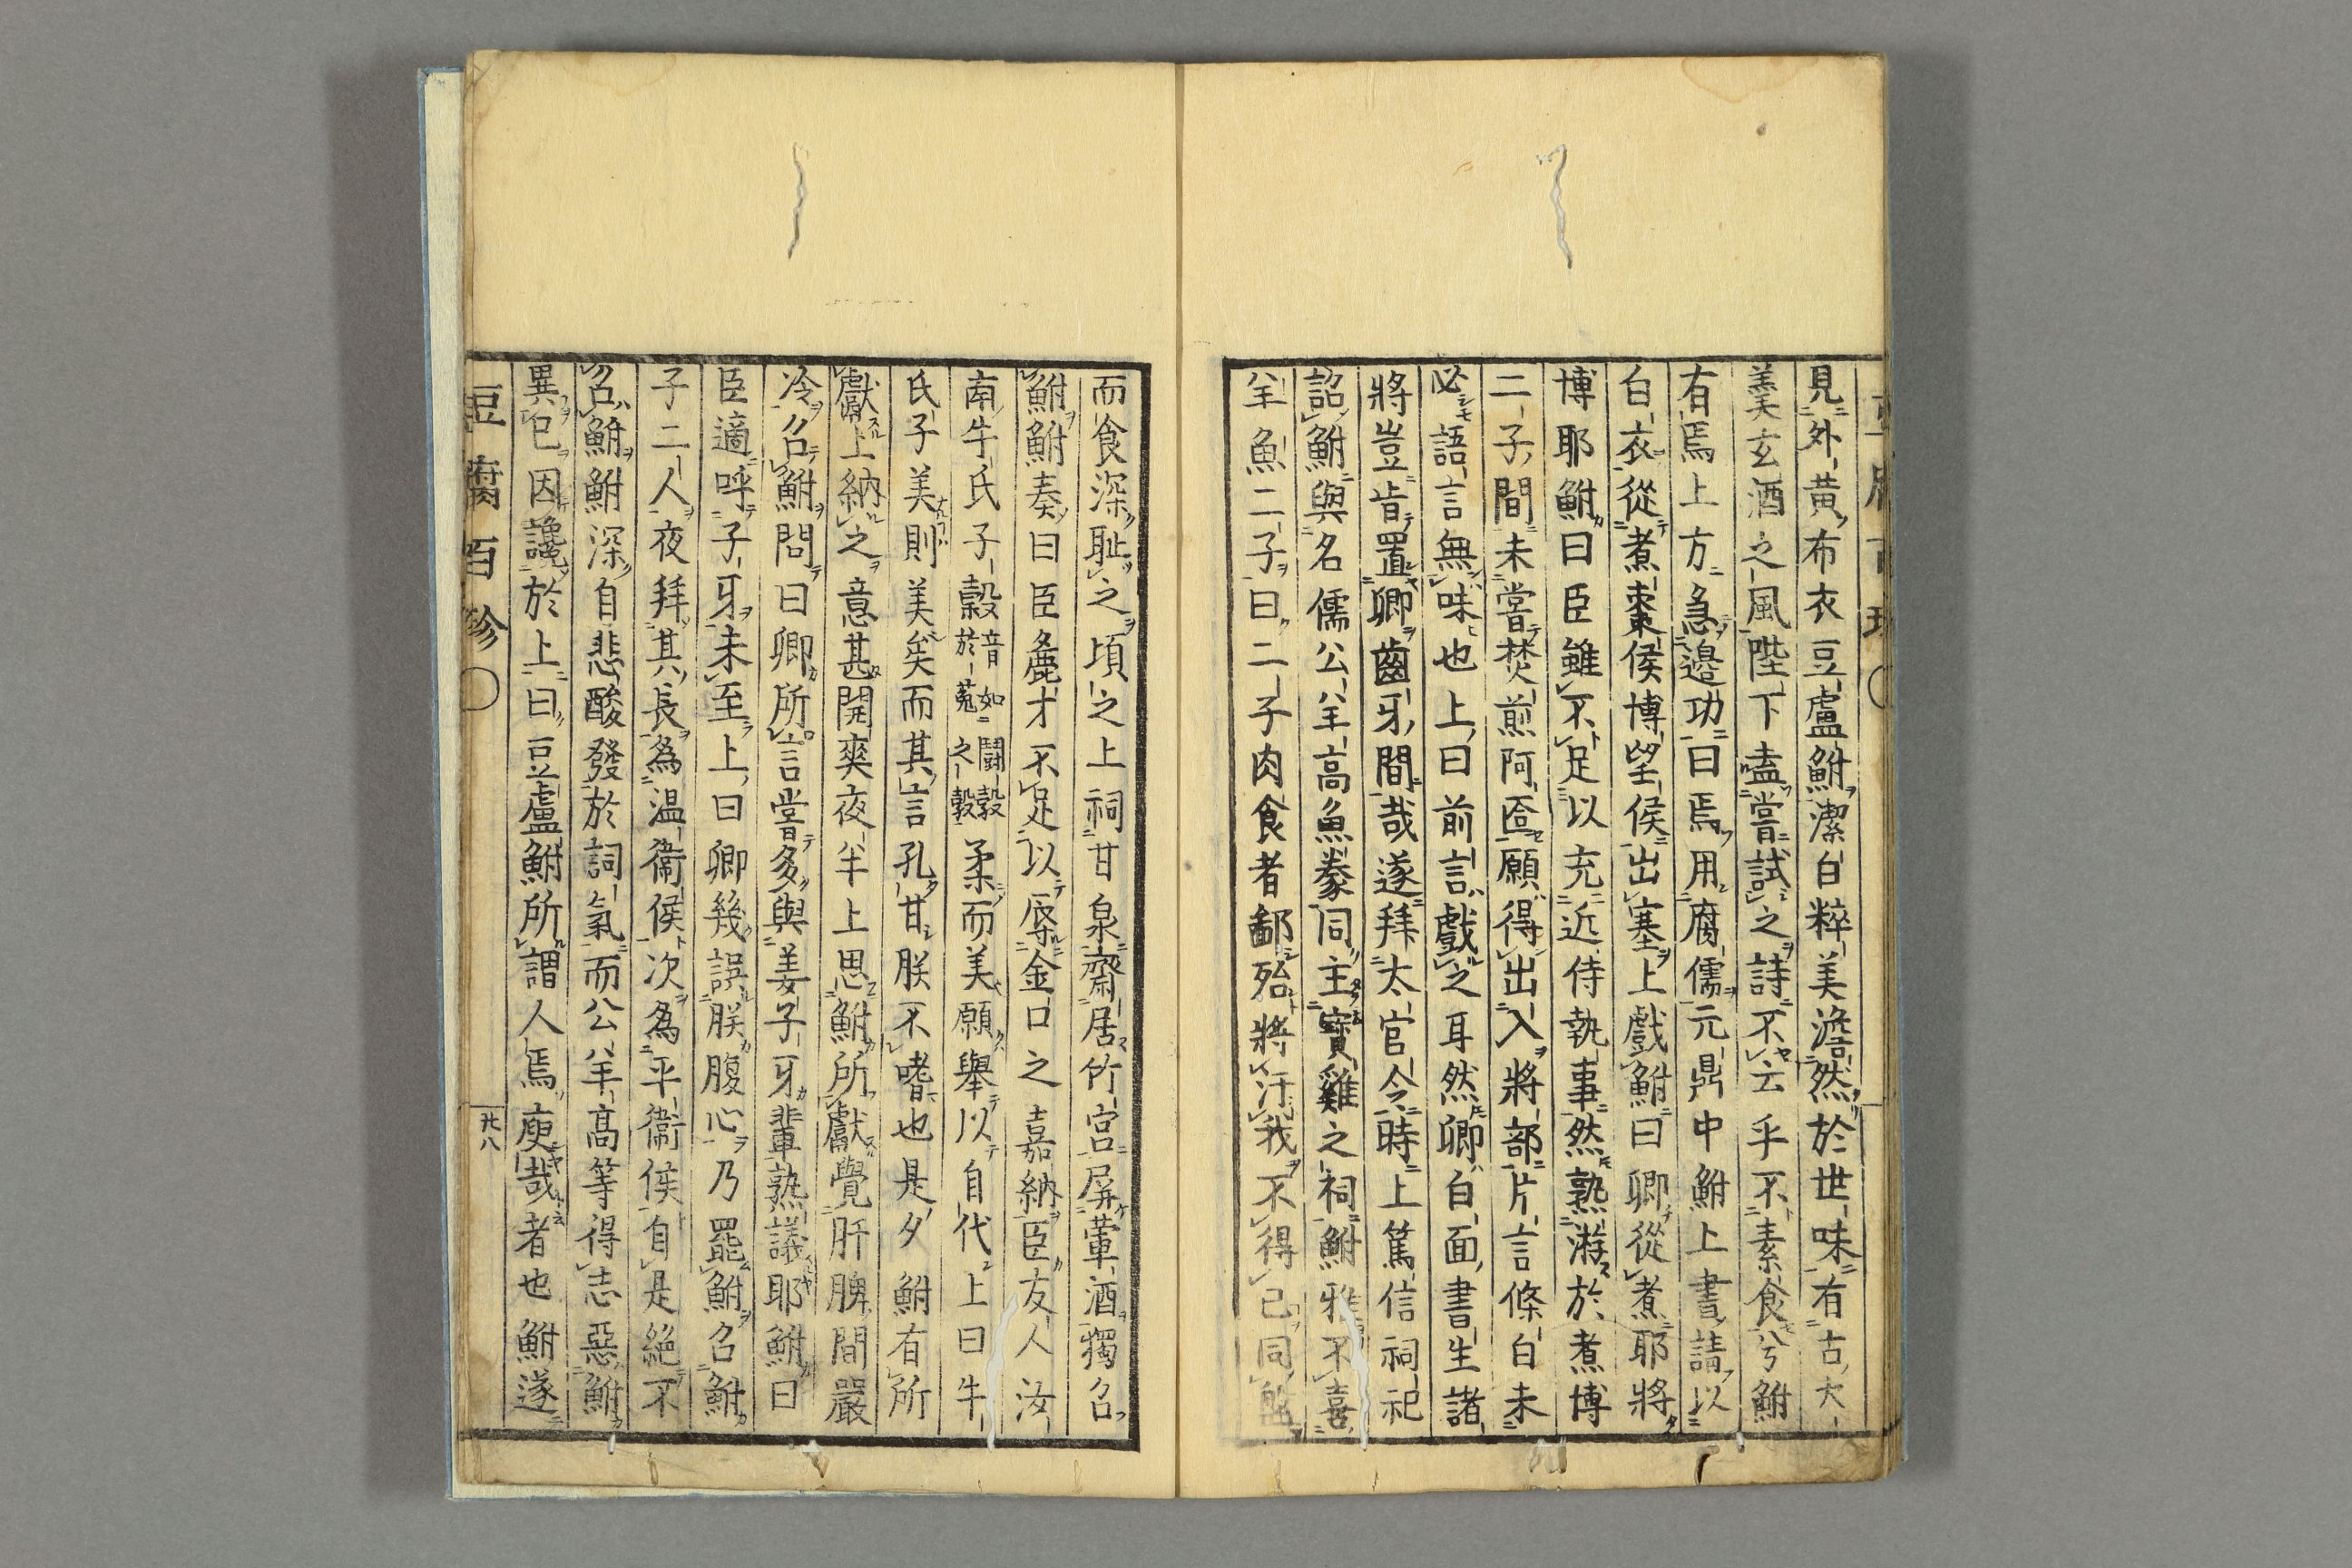 見外黃布衣豆盧鮒潔白粹美澹然於世味有古大
羹玄酒之風陛下盍嘗試之詩不云乎不素食兮鮒
有焉上方急邊功曰焉用腐儒元鼎中鮒上書請以
白衣從煮棗侯博望侯出塞上戲鮒曰卿從煮耶將
博耶鮒曰臣雖不足以充近侍執事然熟游於煮博
二子間未嘗焚煎阿匼願得出入將部片言條白未
必語言無味也上曰前言戲之耳然卿白面書生諸
將豈肯置卿齒牙間哉遂拜太官令時上篤信祠祀
詔鮒與名儒公羊高魚豢同主寶雞之祠鮒雅不喜
羊魚二子曰二子肉食者鄙殆將汙我不得已同盤
而食深耻之頃之上祠甘泉齋居竹宮屏葷酒獨召
鮒鮒奏曰臣麁才不足以辱金口之嘉納臣友人汝
南牛氏子㝅音如鬪㝅於菟之㝅柔而美願舉以自代上曰牛
氏子美則美矣而其言孔甘朕不嗜也是夕鮒有所
獻上納之意甚開爽夜半上思鮒所獻覺肝脾間嚴
冷召鮒問曰卿所言嘗多與姜子牙輩熟議耶鮒曰
臣適呼子牙未至上曰卿幾誤朕腹心乃罷鮒召鮒
子二人夜拜其長爲温衞侯次爲平衞侯自是絕不
召鮒鮒深自悲酸發於詞氣而公羊高等得志惡鮒
異已因讒於上曰豆盧鮒所謂人焉廋哉者也鮒遂
豆腐百珍
廿八